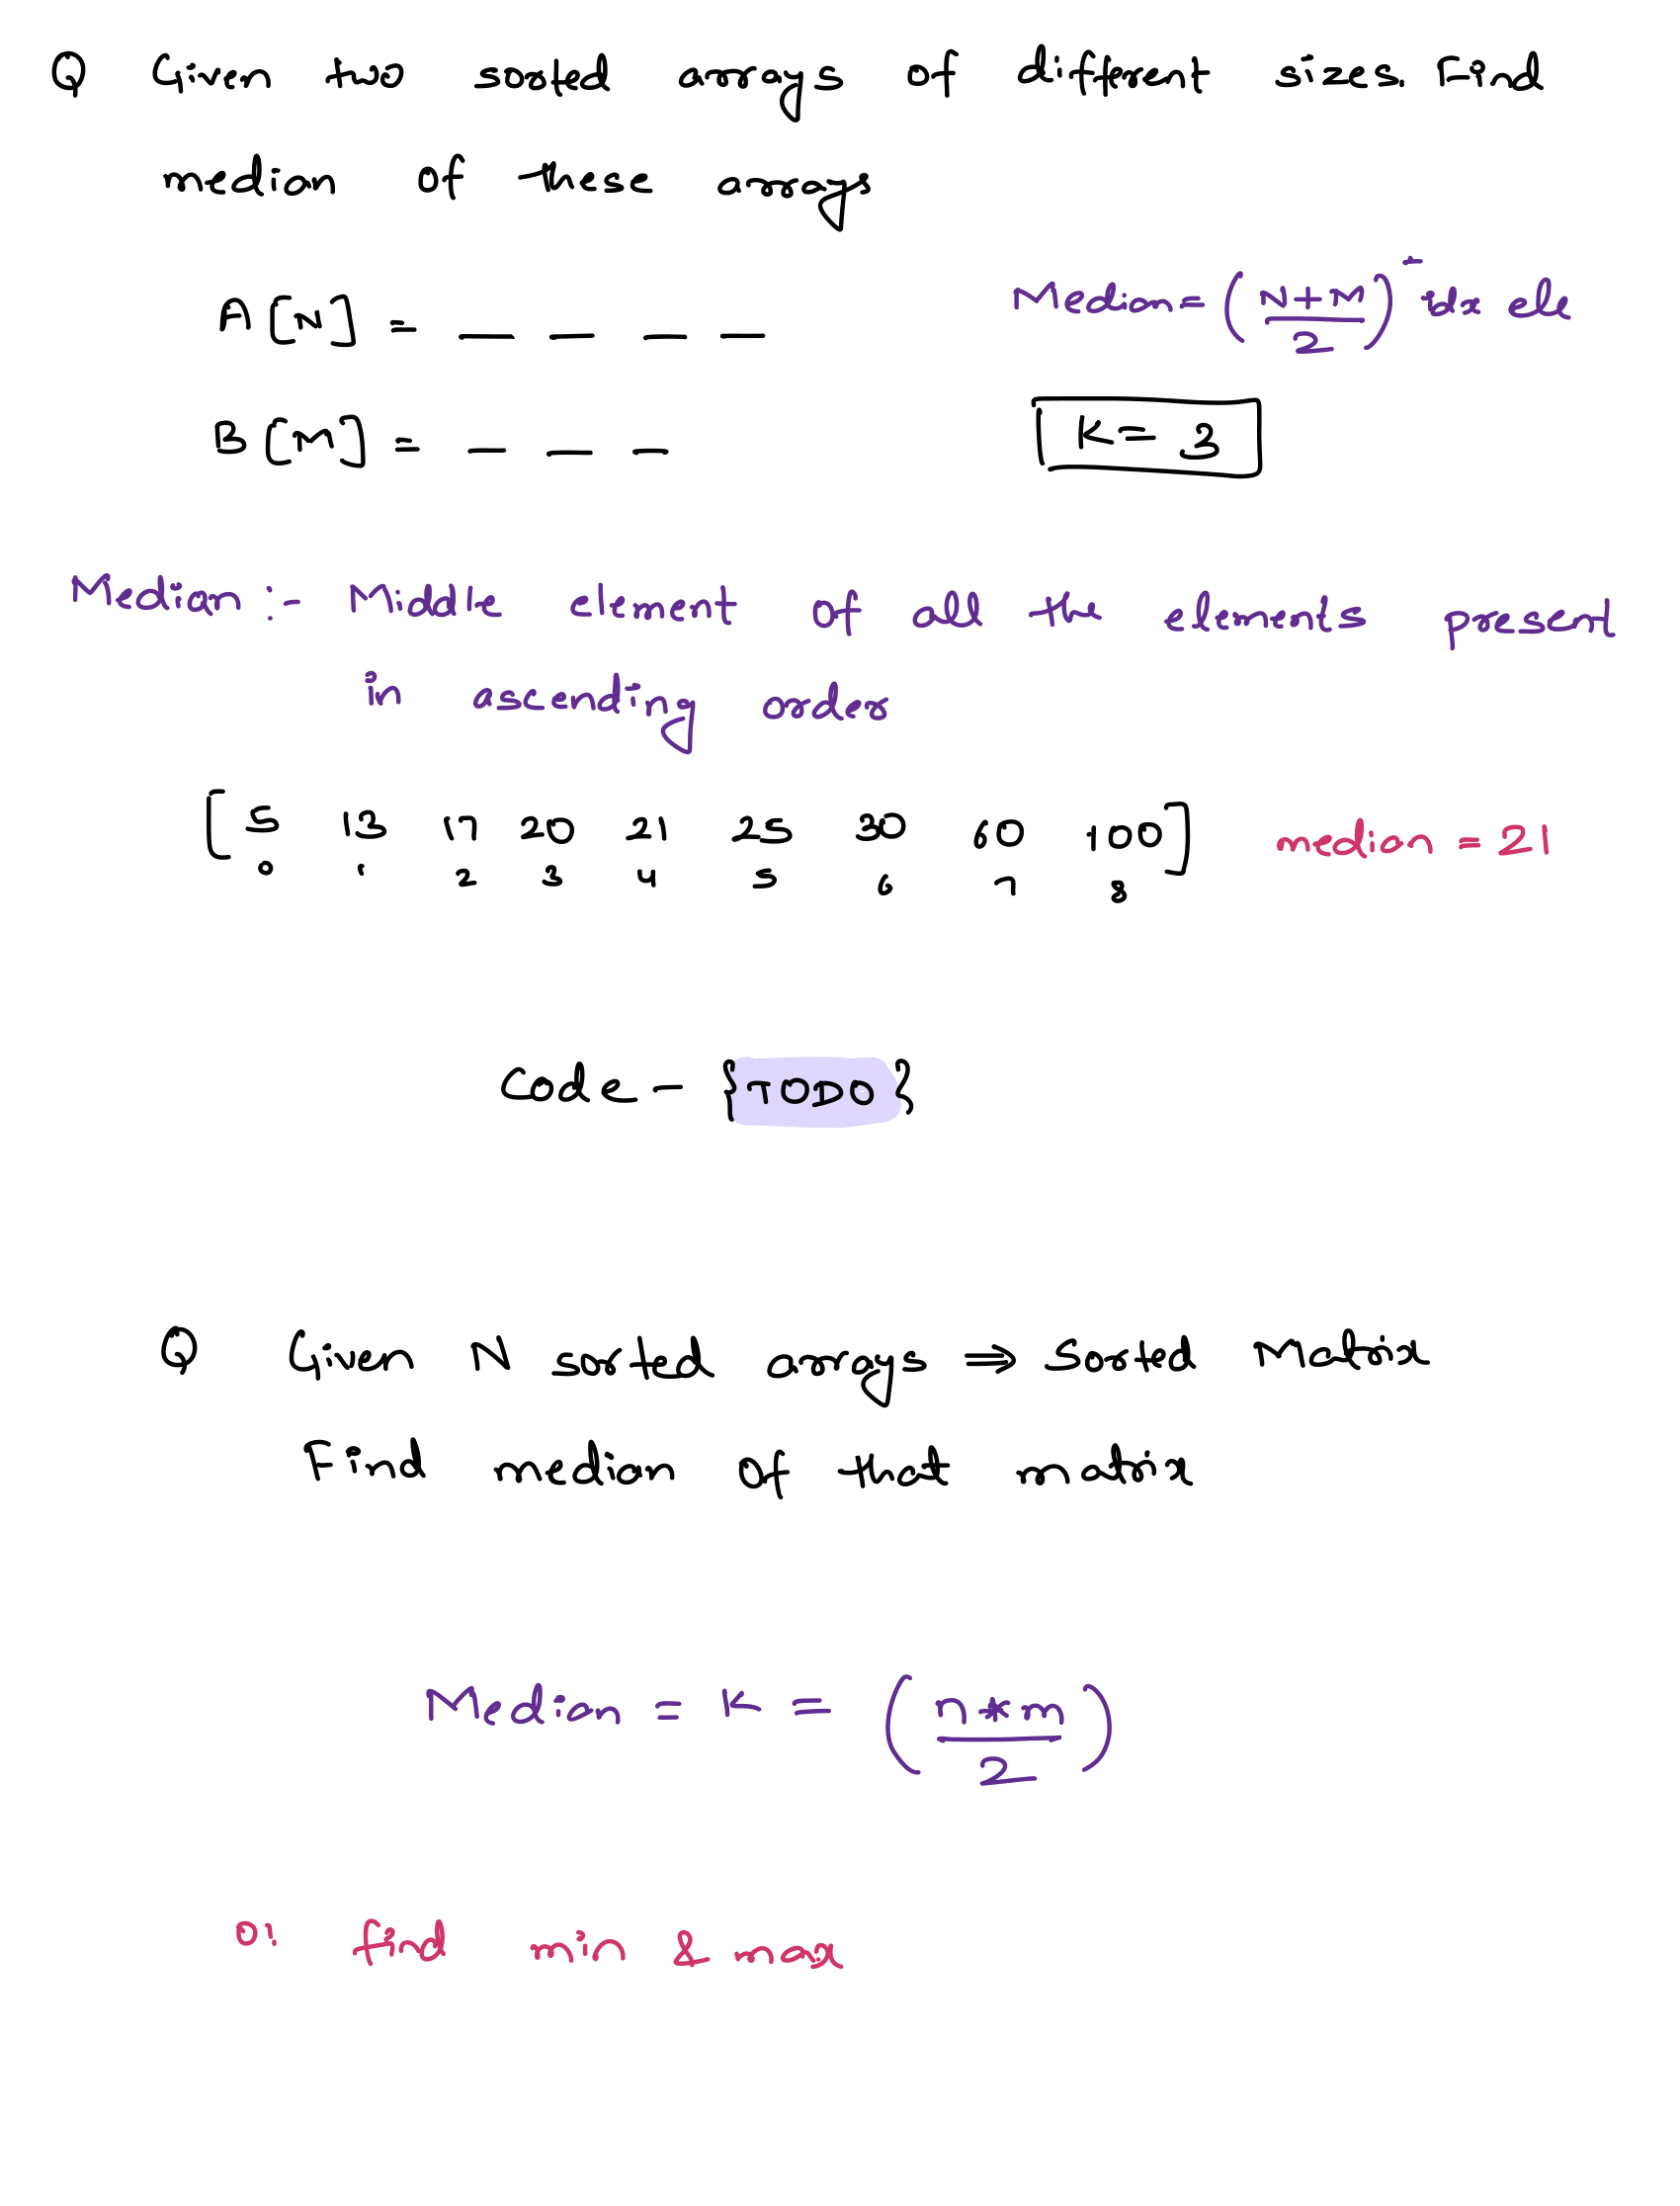 Q Given two sorted arrays of different sizes. Find
median of these arrays
A[N] = _ _ _ _
Median = (N+M/2)- idx ele
B[M] = _ _ _
K = 3
Median :- Middle element of all the elements present
in ascending order
[5 13 17 20 21 25 30 60 100] median = 21
0 1 2 3 4 5 6 7 8
Code - {TODO}
Q Given N sorted arrays ⇒ Sorted Matrix
Find median of that matrix
Median = K = (n*m/2)
0: find min & max